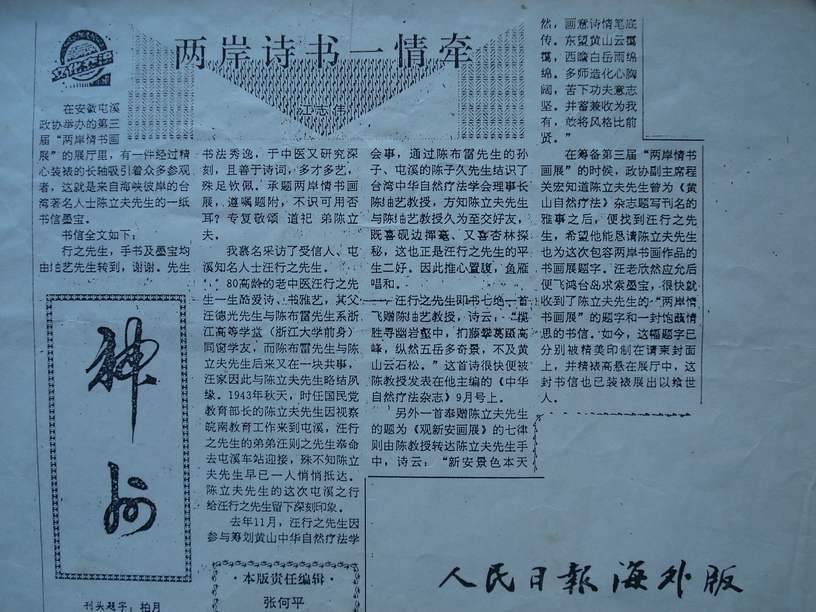 两岸诗书一情牵
江志伟
在安徽屯溪
政协举办的第三
届“两岸情书画
展”的展厅里，有一件经过精
心装裱的长轴吸引着众多参观
者，这就是来自海峡彼岸的台
湾著名人士陈立夫先生的一纸
书信墨宝。
书信全文如下：
行之先生，手书及墨宝均
由䌷艺先生转到，谢谢。先生
书法秀逸，于中医又研究深
刻，且善于诗词，多才多艺，
殊足钦佩。承题两岸情书画
展，遵嘱题附，不识可用否
耳？专复敬颂 道祀 弟陈立
夫。
我慕名采访了受信人、屯
溪知名人士汪行之先生。
80高龄的老中医汪行之先
生一生酷爱诗、书雅艺，其父
汪德光先生与陈布雷先生系浙
江高等学堂（浙江大学前身）
同窗学友，而陈布雷先生与陈
立夫先生后来又在一块共事，
汪家因此与陈立夫先生略结夙
缘。1943年秋天，时任国民党
教育部长的陈立夫先生因视察
皖南教育工作来到屯溪，汪行
之先生的弟弟汪则之先生奉命
去屯溪车站迎接，殊不知陈立
夫先生早已一人悄悄抵达。
陈立夫先生的这次屯溪之行
给汪行之先生留下深刻印象。
去年11月，汪行之先生因
参与筹划黄山中华自然疗法学
会事，通过陈布雷先生的孙
子、屯溪的陈子久先生结识了
台湾中华自然疗法学会理事长
陈䌷艺教授，方知陈立夫先生
与陈䌷艺教授久为至交好友，
既喜砚边挥毫、又喜杏林探
秘，这也正是汪行之先生的平
生二好。因此推心置腹，鱼雁
唱和。
汪行之先生即书七绝一首
飞赠陈䌷艺教授，诗云：“揽
胜寻幽岩壑中，扪藤攀葛跻高
峰，纵然五岳多奇景，不及黄
山云石松。”这首诗很快便被
陈教授发表在他主编的《中华
自然疗法杂志》9月号上。
另外一首奉赠陈立夫先生
的题为《观新安画展》的七律
则由陈教授转达陈立夫先生手
中，诗云：“新安景色本天
然，画意诗情笔底
传。东望黄山云霭
霭，西瞻白岳雨绵
绵。多师造化心胸
阔，苦下功夫意志
坚。并蓄兼收为我
有，敢将风格比前
贤。”
在筹备第三届“两岸情书
画展”的时候，政协副主席程
关宏知道陈立夫先生曾为《黄
山自然疗法》杂志题写刊名的
雅事之后，便找到汪行之先
生，希望他能恳请陈立夫先生
也为这次包容两岸书画作品的
书画展题字。汪老欣然应允后
便飞鸿台岛求索墨宝，很快就
收到了陈立夫先生的“两岸情
书画展”的题字和一封饱蘸情
思的书信。如今，这幅题字已
分别被精美印制在请柬封面
上，并精裱高悬在展厅中，这
封书信也已装裱展出以飨世
人。
神州
刊头题字：柏月
·本版责任编辑·
张何平
人民日報海外版